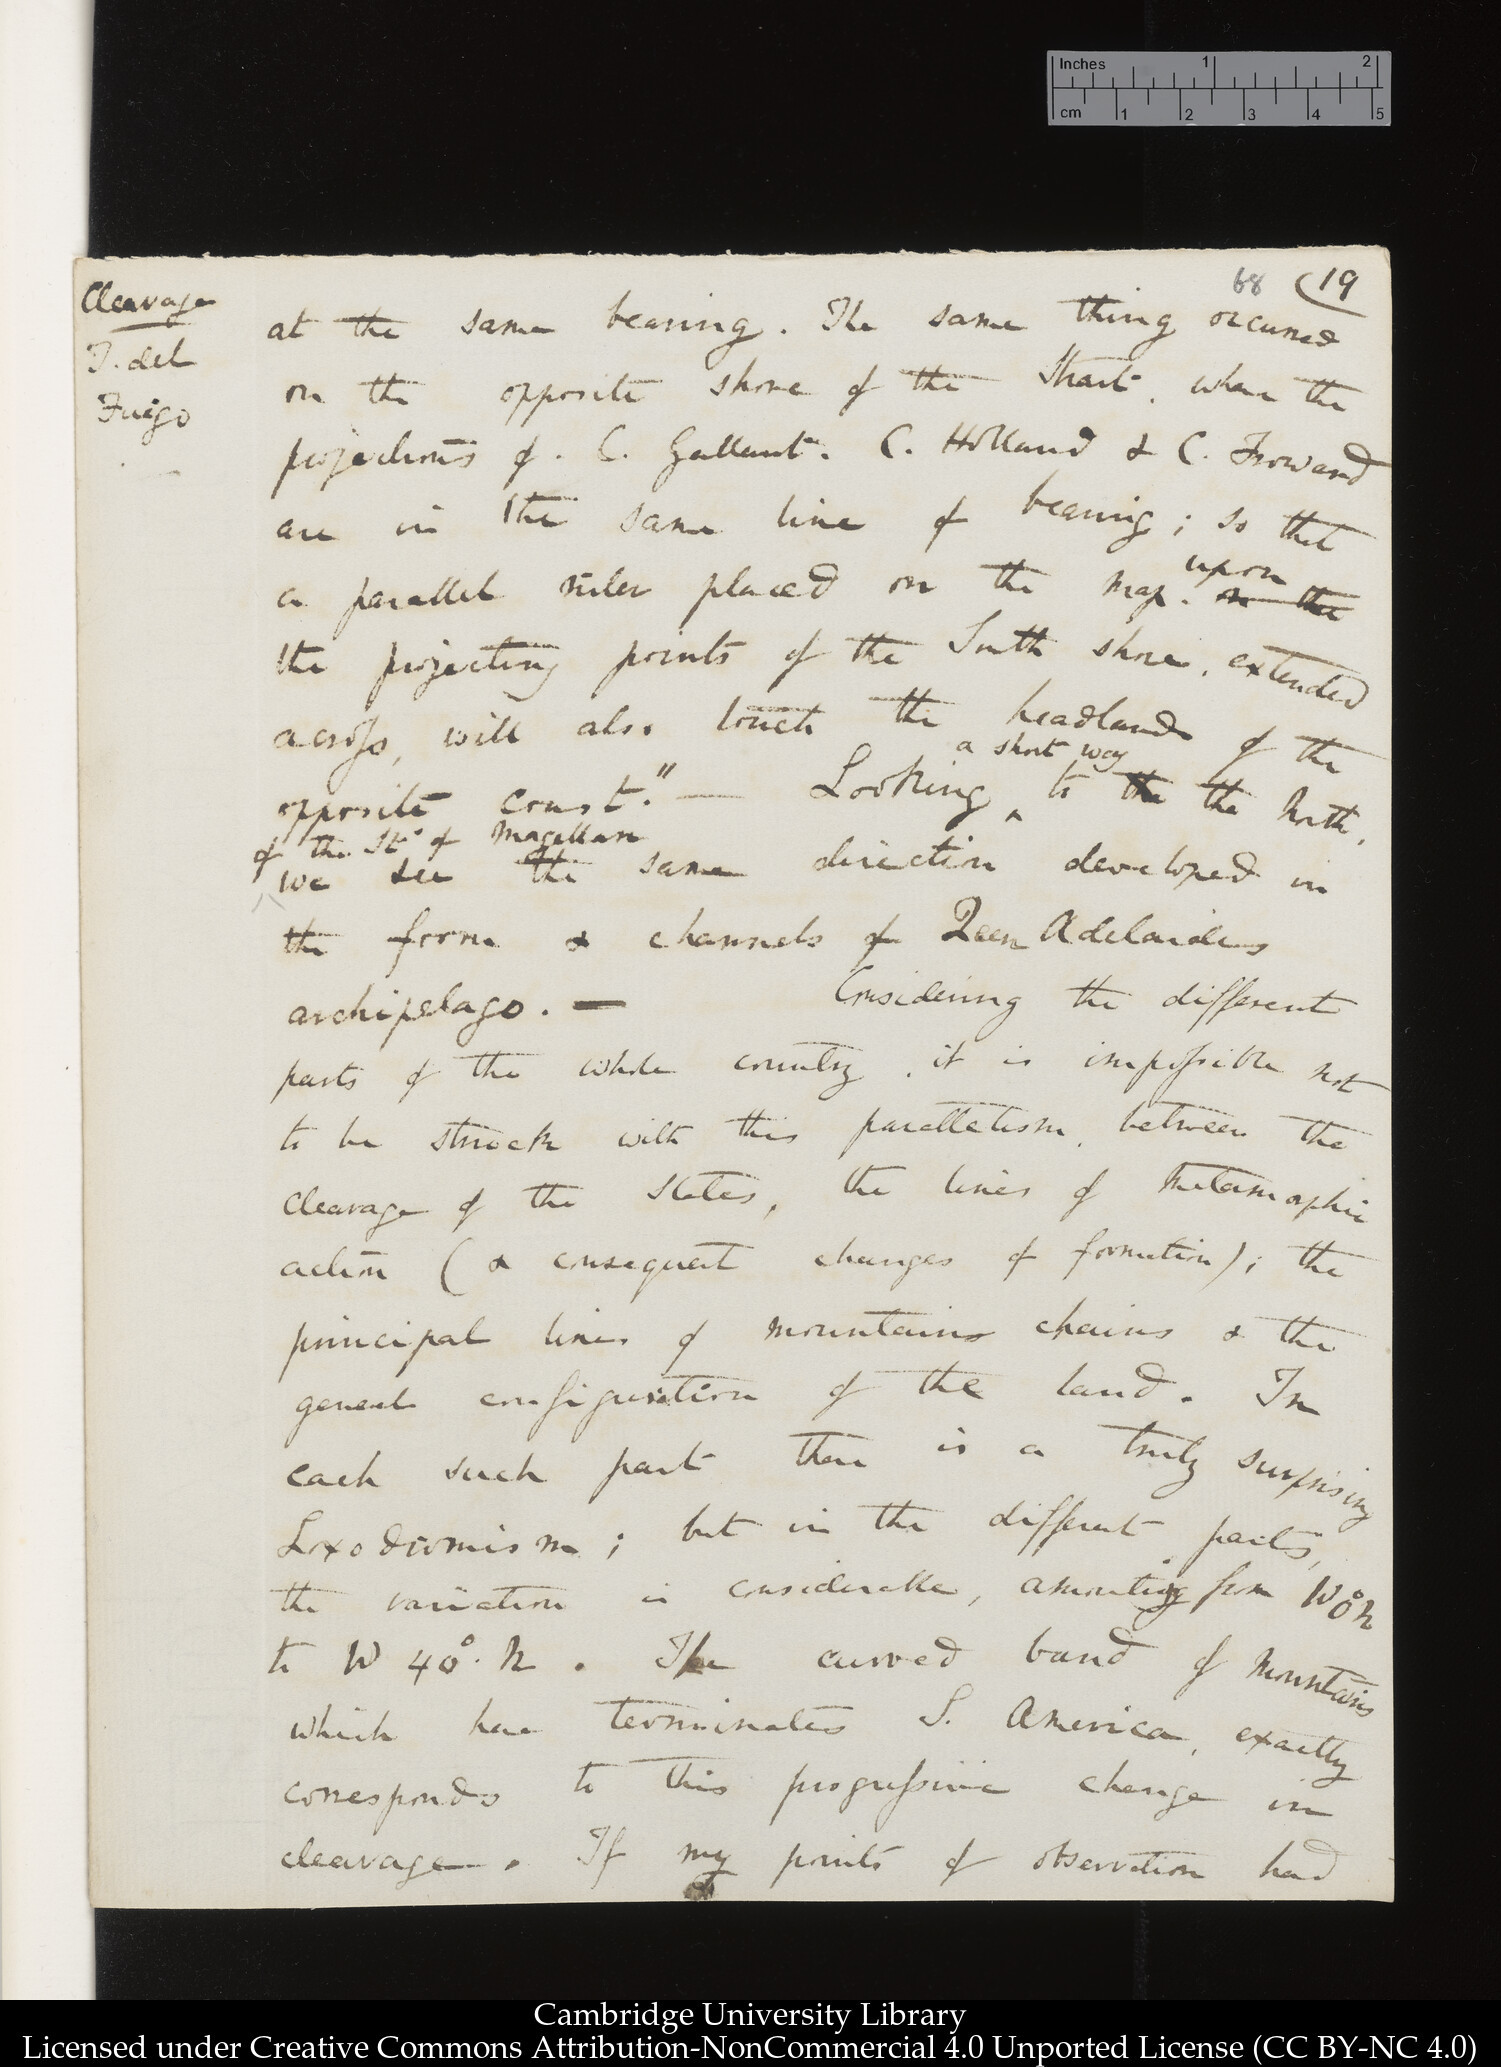 Inches 1 2
cm 1 2 3 4 5
68 (19
Cleavage
T. del
Fuego
at the same bearing. The same thing occurred
on the opposite shore of the Strait, where the
projections of. C. Gallant. C. Holland & C. Froward
are in the same line of bearing; so that
upon
a parallel ruler placed on the map. on the
the projecting points of the South shore, extended
across, will also touch the headlands of the
a short way
opposite coast." — Looking ^ to the the North,
of the St. of Magellan
we see the same direction developed in
the form & channels of Queen Adelaides
archipelago. — Considering the different
parts of the whole country, it is impossible not
to be struck with this parallelism, between the
cleavage of the slates, the lines of metamorphic
action (& consequent changes of formation); the
principal lines of mountains chains & the
general configuration of the land. In
each such part there is a truly surprising
Loxodromism; but in the different parts,
the variation is considerable, amounting from W 0° N
to W 40°. N. The curved band of mountains
which here terminates S. America, exactly
corresponds to this progressive change in
cleavage. If my points of observation had
Cambridge University Library
Licensed under Creative Commons Attribution-NonCommercial 4.0 Unported License (CC BY-NC 4.0)